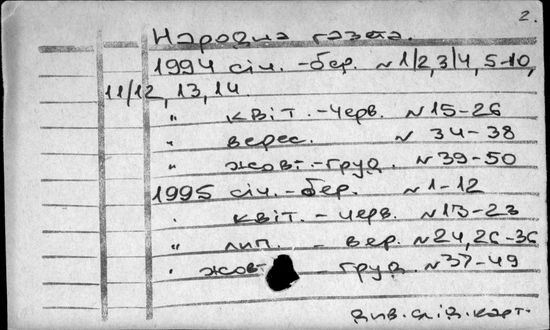 2.
Народна газета.
1994 січ.-бер. N1/2,3/4,5-10,
11/12,13,14
" квіт.-черв. N15-26
" верес. N 34-38
" жовт.-груд. N39-50
1995 січ.-бер. N1-12
" квіт.-черв. N13-23
" лип. - вер. N24,26-36
" жовт - груд N37-49
див. слід. карт.